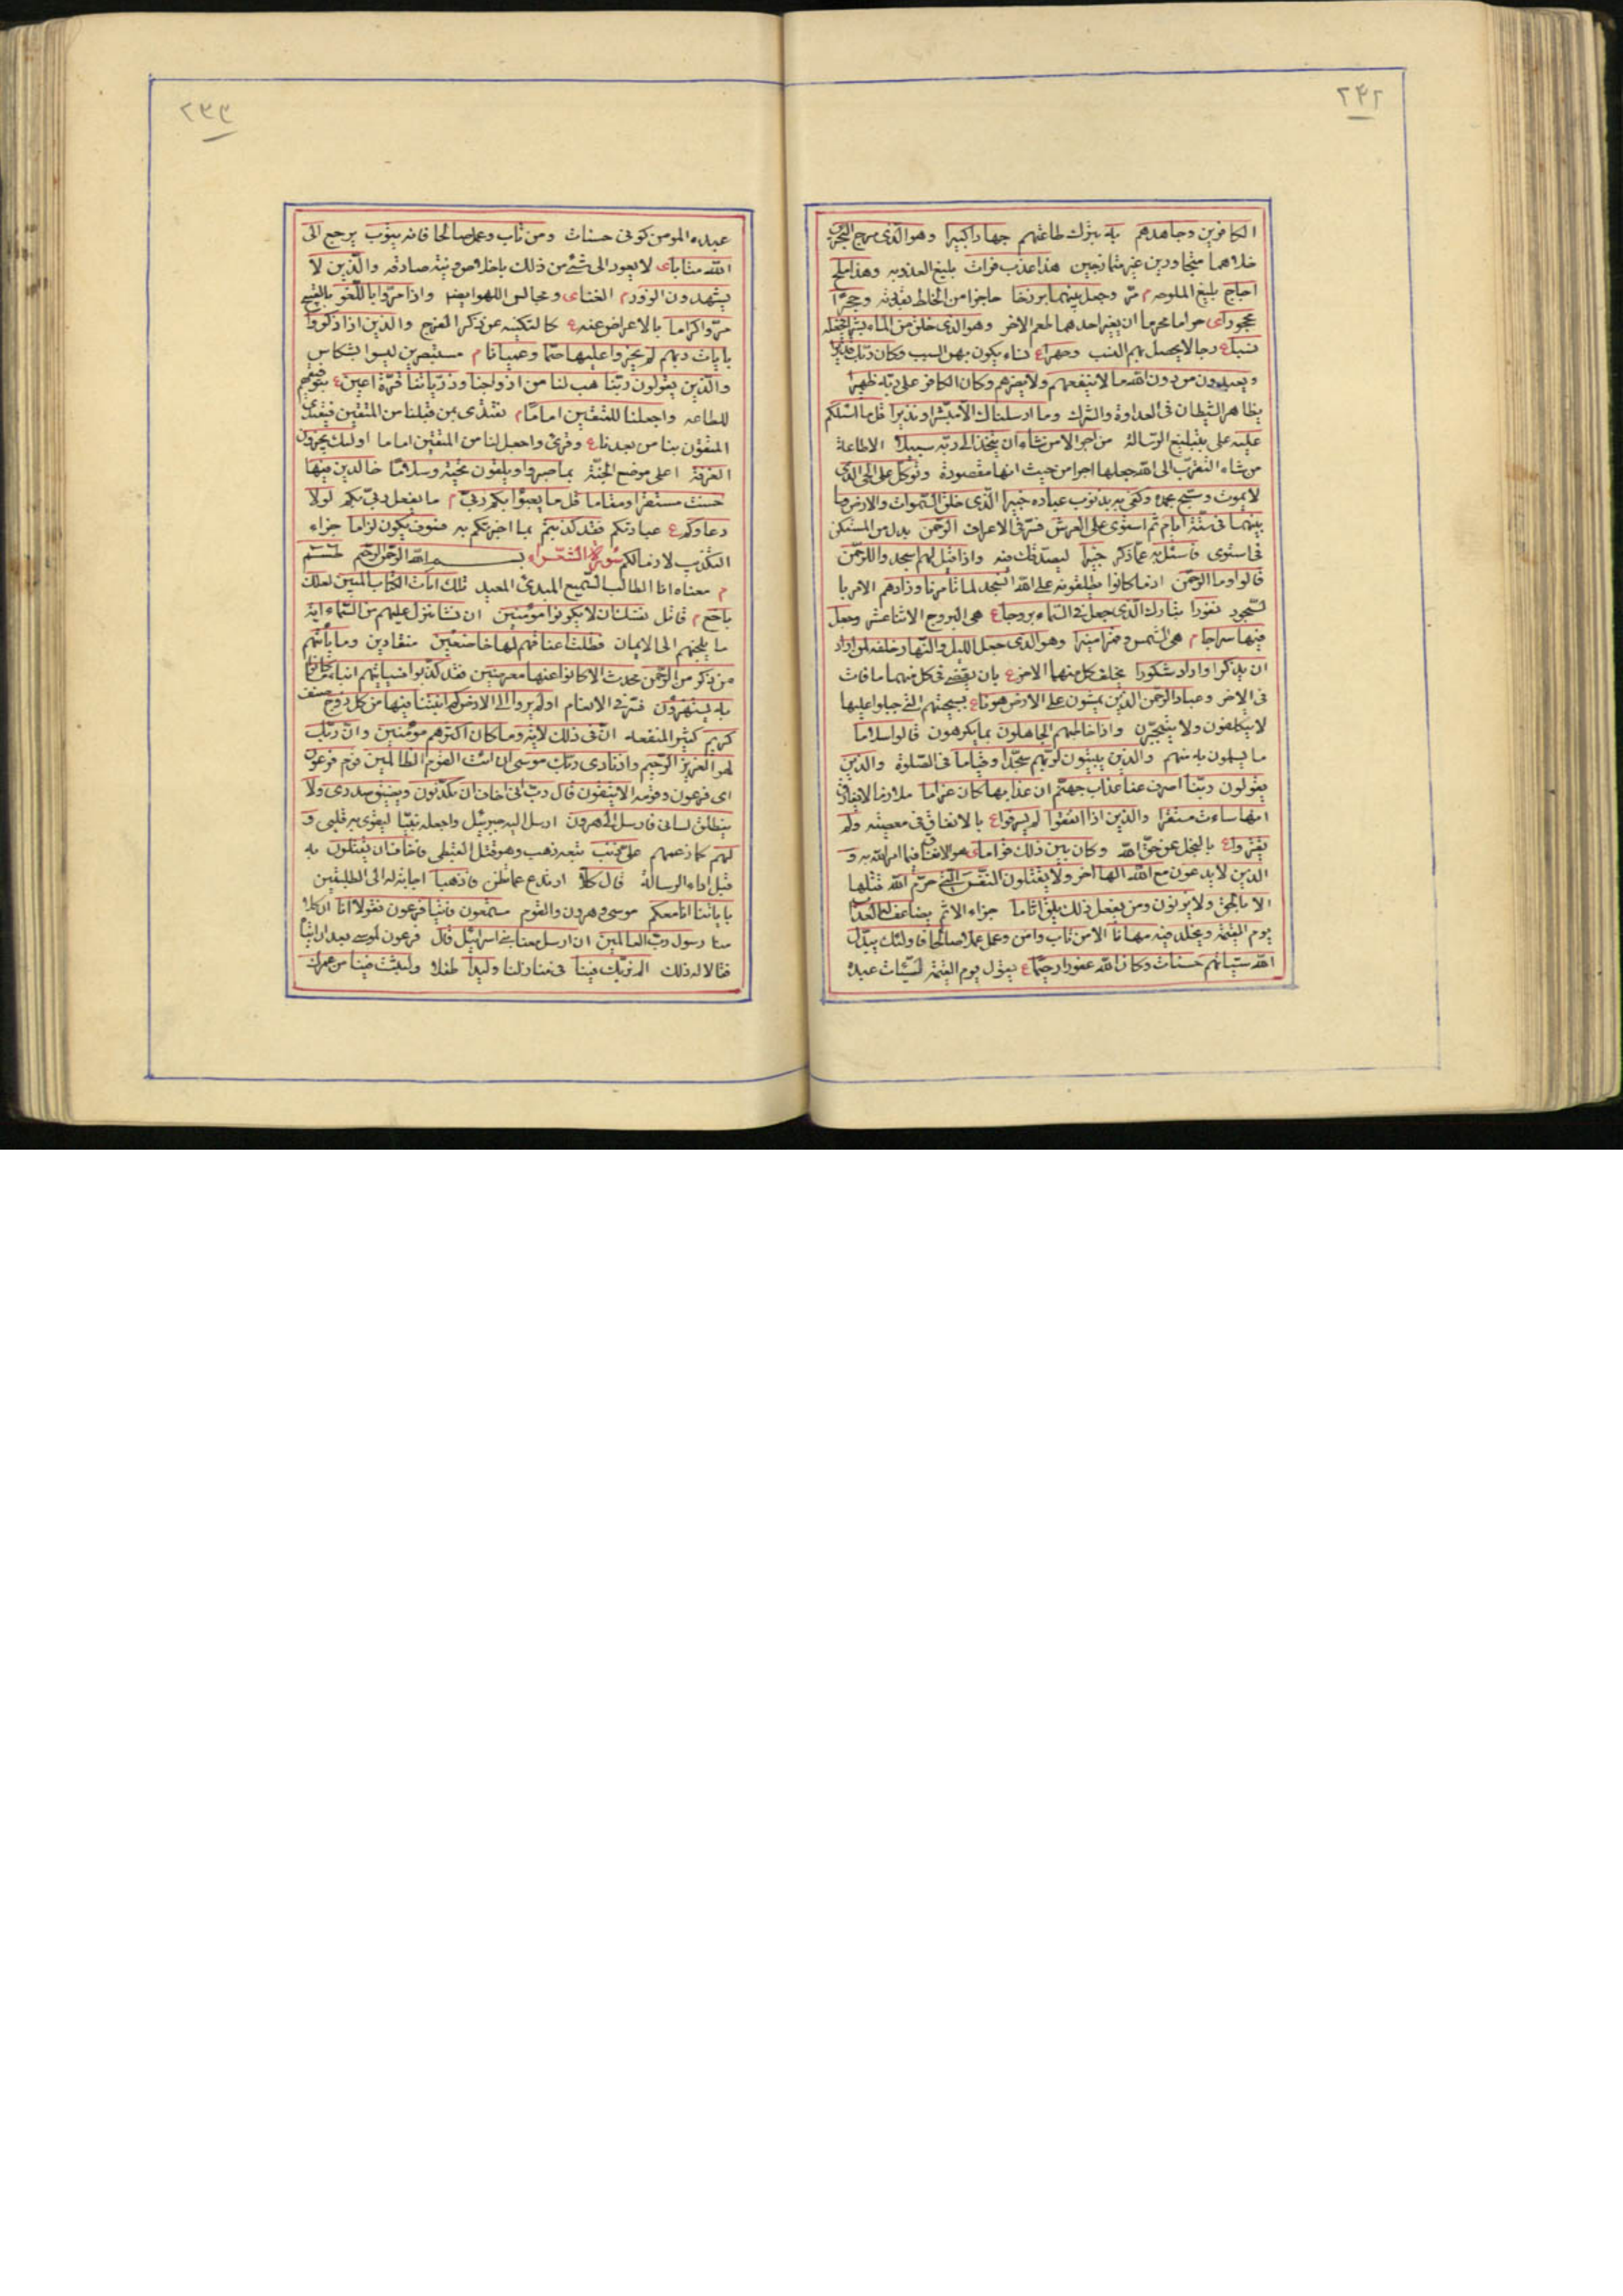 ٢٤٢
الكافرين وجاهدهم به بترك طاعتهم جهادا كبيرا وهو الذى مرج البحرين
خلاهما متجاورين غير متمازجين هذا عذب فرات بليغ العذوبه وهذا ملح
اجاج بليغ الملوحه م مرّ وجعل بينهما برزخا حاجزا من الخلط بقدرته وحجرا
محجورا ى حراما محرما ان يغير احدهما طعم الاخر وهو الذى خلق من الماء بشرا فجعله
نسبا ع رجالا يحصل بهم النسب وصهرا ع نساء يكون بهن السبب وكان ربك قديرا
ويعبدون من دون الله ما لا ينفعهم ولا يضرهم وكان الكافر على ربه ظهيرا
يظاهر الشيطان فى العداوة والشرك وما ارسلناك الا مبشرا ونذيرا قل ما اسئلكم
عليه على تبليغ الرسالة من اجر الا من شاء ان يتخذ الى ربه سبيلا الا طاعة
من شاء التقرب الى الله جعلها اجرا من حيث انها مقصودة وتوكل على الحى الذى
لا يموت وسبح بحمده وكفى به بذنوب عباده خبيرا الذى خلق السموات والارض وما
بينهما فى ستة ايام ثم استوى على العرش فسر فى الاعراف الرحمن بدل من المستكن
فى استوى فاسئل به عما ذكر خبيرا ليصدقك فيه واذا قيل لهم اسجدوا للرحمن
قالوا وما الرحمن اذ ما كانوا يطلقونه على الله انسجد لما تأمرنا وزادهم الامر با
لسجود نفورا تبارك الذى جعل فى السماء بروجا ع هى البروج الاثنا عشر وجعل
فيها سراجا م هى الشمس وقمرا منيرا وهو الذى جعل الليل والنهار خلفه لمن اراد
ان يذكر او اراد شكورا يخلف كل منهما الاخر ع بان يقضى فى كل منهما ما فات
فى الاخر وعباد الرحمن الذين يمشون على الارض هونا ع بسجيتهم التى جبلوا عليها
لا يتكلفون ولا يتجبرون واذا خاطبهم الجاهلون بما يكرهون قالوا سلاما
ما يسلمون به منهم والذين يبيتون لربهم سجدا وقياما فى الصلوة والذين
يقولون ربنا اصرف عنا عذاب جهنم ان عذابها كان غراما ملازما لا يفارق
انها ساءت مستقرا والذين اذا انفقوا لم يسرفوا ع بالانفاق فى معصيته ولم
يقتروا ع بالبخل عن حق الله وكان بين ذلك قواما ى هو الانفاق فيما امر الله به و
الذين لا يدعون مع الله الها اخر ولا يقتلون النفس التى حرم الله قتلها
الا بالحق ولا يزنون ومن يفعل ذلك يلق اثاما جزاء الاثم يضاعف له العذاب
يوم القيمة ويخلد فيه مهانا الا من تاب وامن وعمل عملا صالحا فاولئك يبدل
الله سيئاتهم حسنات وكان الله غفورا رحيما ع يقول يوم القيمة لسيئات عبده
٢٤٣
عبده المومن كونى حسنات ومن تاب وعمل صالحا فانه يتوب يرجع الى
الله متابا ى لا يعود الى شئ من ذلك باخلاص ونية صادقه والذين لا
يشهدون الزور م الغنا ى ومجالس اللهو ايضا واذا مروا باللغو بالقبيح
مروا كراما بالاعراض عنه ع كالتكنيه عن ذكر الفرج والذين اذا ذكروا
بايات ربهم لم يخروا عليها صما وعميانا م مستبصرين ليسوا بشكاس
والذين يقولون ربنا هب لنا من ازواجنا وذرياتنا قرة اعين ع بتوفيقهم
للطاعه واجعلنا للمتقين اماما م نقتدى بمن قبلنا من المتقين فيقتدى
المتقون بنا من بعدنا ع وقرئ واجعل لنا من المتقين اماما اولئك يجزون
الغرفة اعلى موضع الجنة بما صبروا ويلقون تحية وسلاما خالدين فيها
حسنت مستقرا ومقاما قل ما يعبؤا بكم ربى م ما يفعل ربى بكم لولا
دعاؤكم ع عبادتكم فقد كذبتم بما اخبرتكم به فسوف يكون لزاما جزاء
التكذيب لازما لكم سورة الشعراء بسم الله الرحمن الرحيم طسم
م معناه انا الطالب السميع المبدئ المعيد تلك ايات الكتاب المبين لعلك
باخع م قاتل نفسك ان لا يكونوا مؤمنين ان نشا ننزل عليهم من السماء اية
ما يلجئهم الى الايمان فظلت اعناقهم لها خاضعين منقادين وما يأتيهم
من ذكر من الرحمن محدث الا كانوا عنها معرضين فقد كذبوا فسيأتيهم انباء ما كانوا
به يستهزؤن فسر فى الانعام اولم يروا الى الارض كم انبتنا فيها من كل زوج صنف
كريم كثير المنفعه ان فى ذلك لاية وما كان اكثرهم مؤمنين وان ربك
لهو العزيز الرحيم واذ نادى ربك موسى ان ائت القوم الظالمين قوم فرعون
اى فرعون وقومه الا يتقون قال رب انى اخاف ان يكذبون ويضيق صدرى ولا
ينطلق لسانى فارسل الى هرون ارسل اليه جبرئيل واجعله نبيا ليقوى به قلبى و
لهم كما زعمهم على ذنب تبعه ذهب وهو قتل القبطى فاخاف ان يقتلون به
قبل اداء الرسالة قال كلا ارتدع عما تظن فاذهبا اجابة له الى الطلبتين
باياتنا انا معكم موسى وهرون والقوم مستمعون فاتيا فرعون فقولا انا ان كلا
منا رسول رب العالمين ان ارسل معنا بنى اسرائيل قال فرعون لموسى بعد ان اتيا
فقالا له ذلك الم نربك فينا فى منازلنا وليدا طفلا ولبثت فينا من عمرك